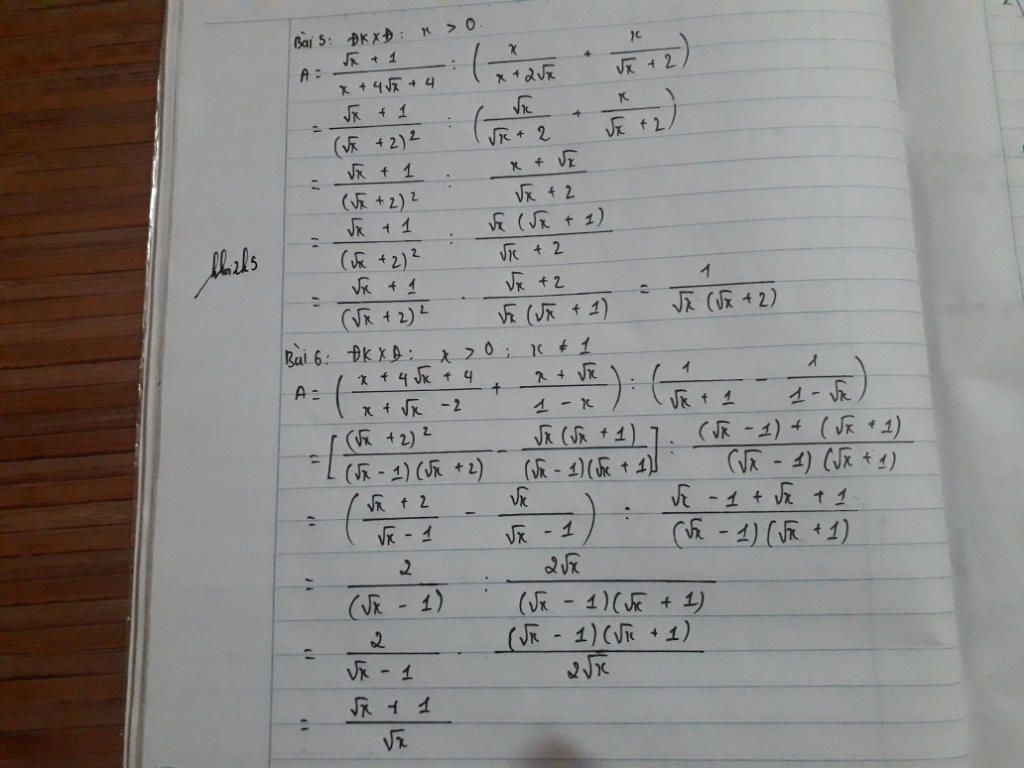 Bài 5: ĐKXĐ: x > 0.
A = (√x + 1)/(x + 4√x + 4) : (x/(x + 2√x) + x/(√x + 2))
= (√x + 1)/(√x + 2)² : (√x/(√x + 2) + x/(√x + 2))
= (√x + 1)/(√x + 2)² : (x + √x)/(√x + 2)
= (√x + 1)/(√x + 2)² : √x(√x + 1)/(√x + 2)
= (√x + 1)/(√x + 2)² . (√x + 2)/(√x(√x + 1)) = 1/(√x(√x + 2))
Bài 6: ĐKXĐ: x > 0; x ≠ 1
A = ((x + 4√x + 4)/(x + √x - 2) + (x + √x)/(1 - x)) : (1/(√x + 1) - 1/(1 - √x))
= [(√x + 2)²/((√x - 1)(√x + 2)) - √x(√x + 1)/((√x - 1)(√x + 1))] : ((√x - 1) + (√x + 1))/((√x - 1)(√x + 1))
= ((√x + 2)/(√x - 1) - √x/(√x - 1)) : (√x - 1 + √x + 1)/((√x - 1)(√x + 1))
= 2/(√x - 1) : 2√x/((√x - 1)(√x + 1))
= 2/(√x - 1) . (√x - 1)(√x + 1)/(2√x)
= (√x + 1)/√x